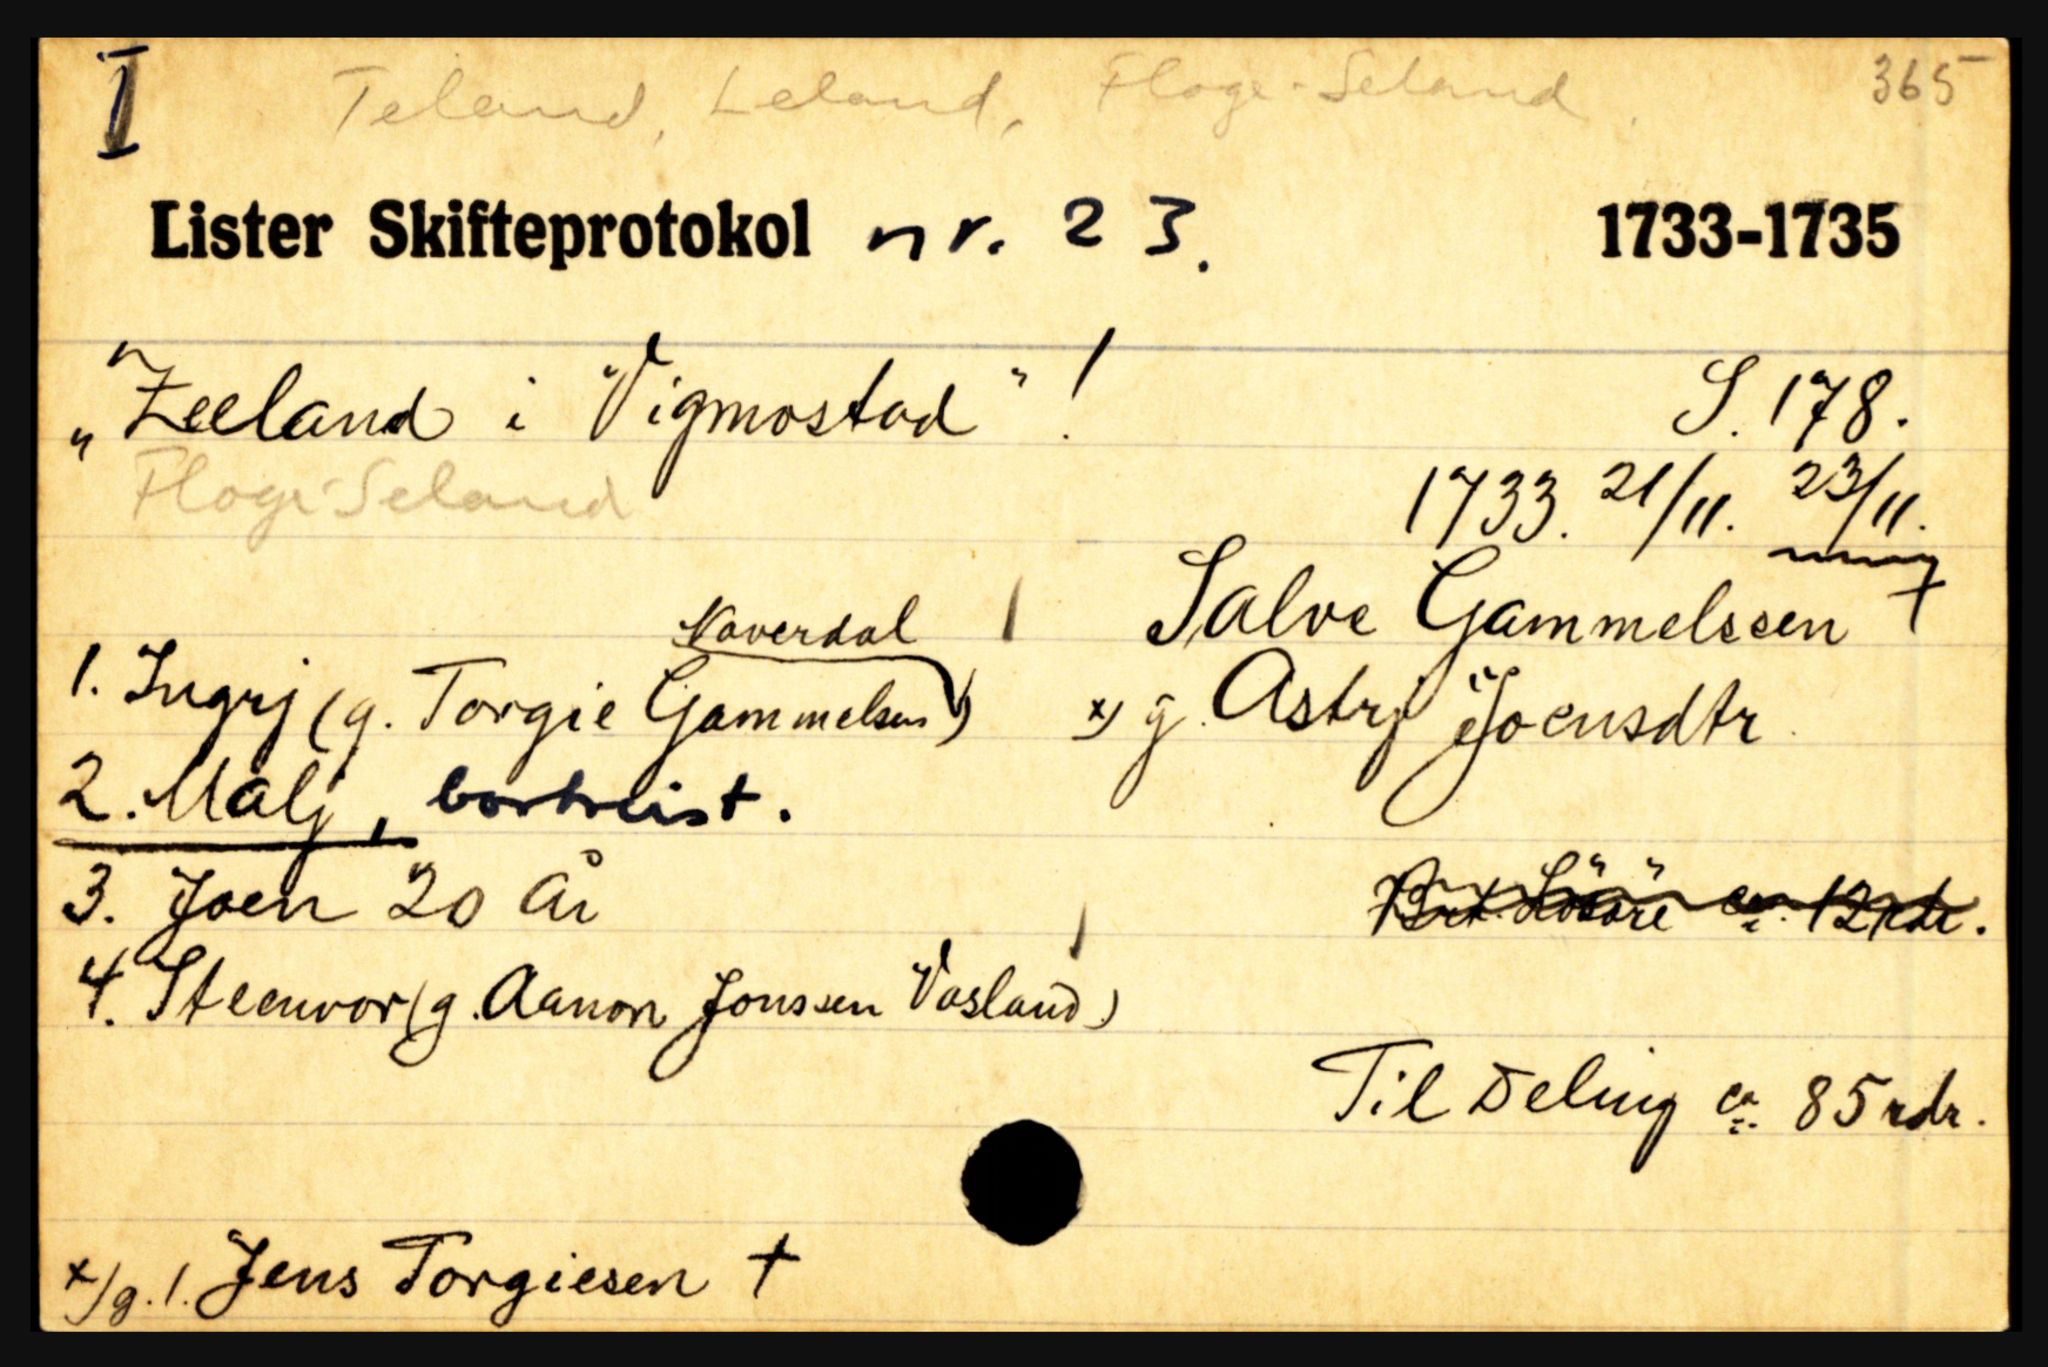 I Teland, Leland, Floge-Seland. 365
Lister Skifteprotokol nr. 23. 1733-1735
„Zeeland i Vigmostad" ! S. 178.
Floge-Seland 1733. 21/11. 23/11.
Salve Gammelssen †
Naverdal
1. Ingrj (g. Torgie Gammelsen) x) g. Astrj Joensdtr.
2. Malj, bortreist.
3. Joen 20 år Brt. Lösöre ca. 12 rdr.
4. Steenvor (g. Aanon Jonssen Vasland)
Til Deling ca. 85 rdr.
x/ g. 1. Jens Torgiesen †